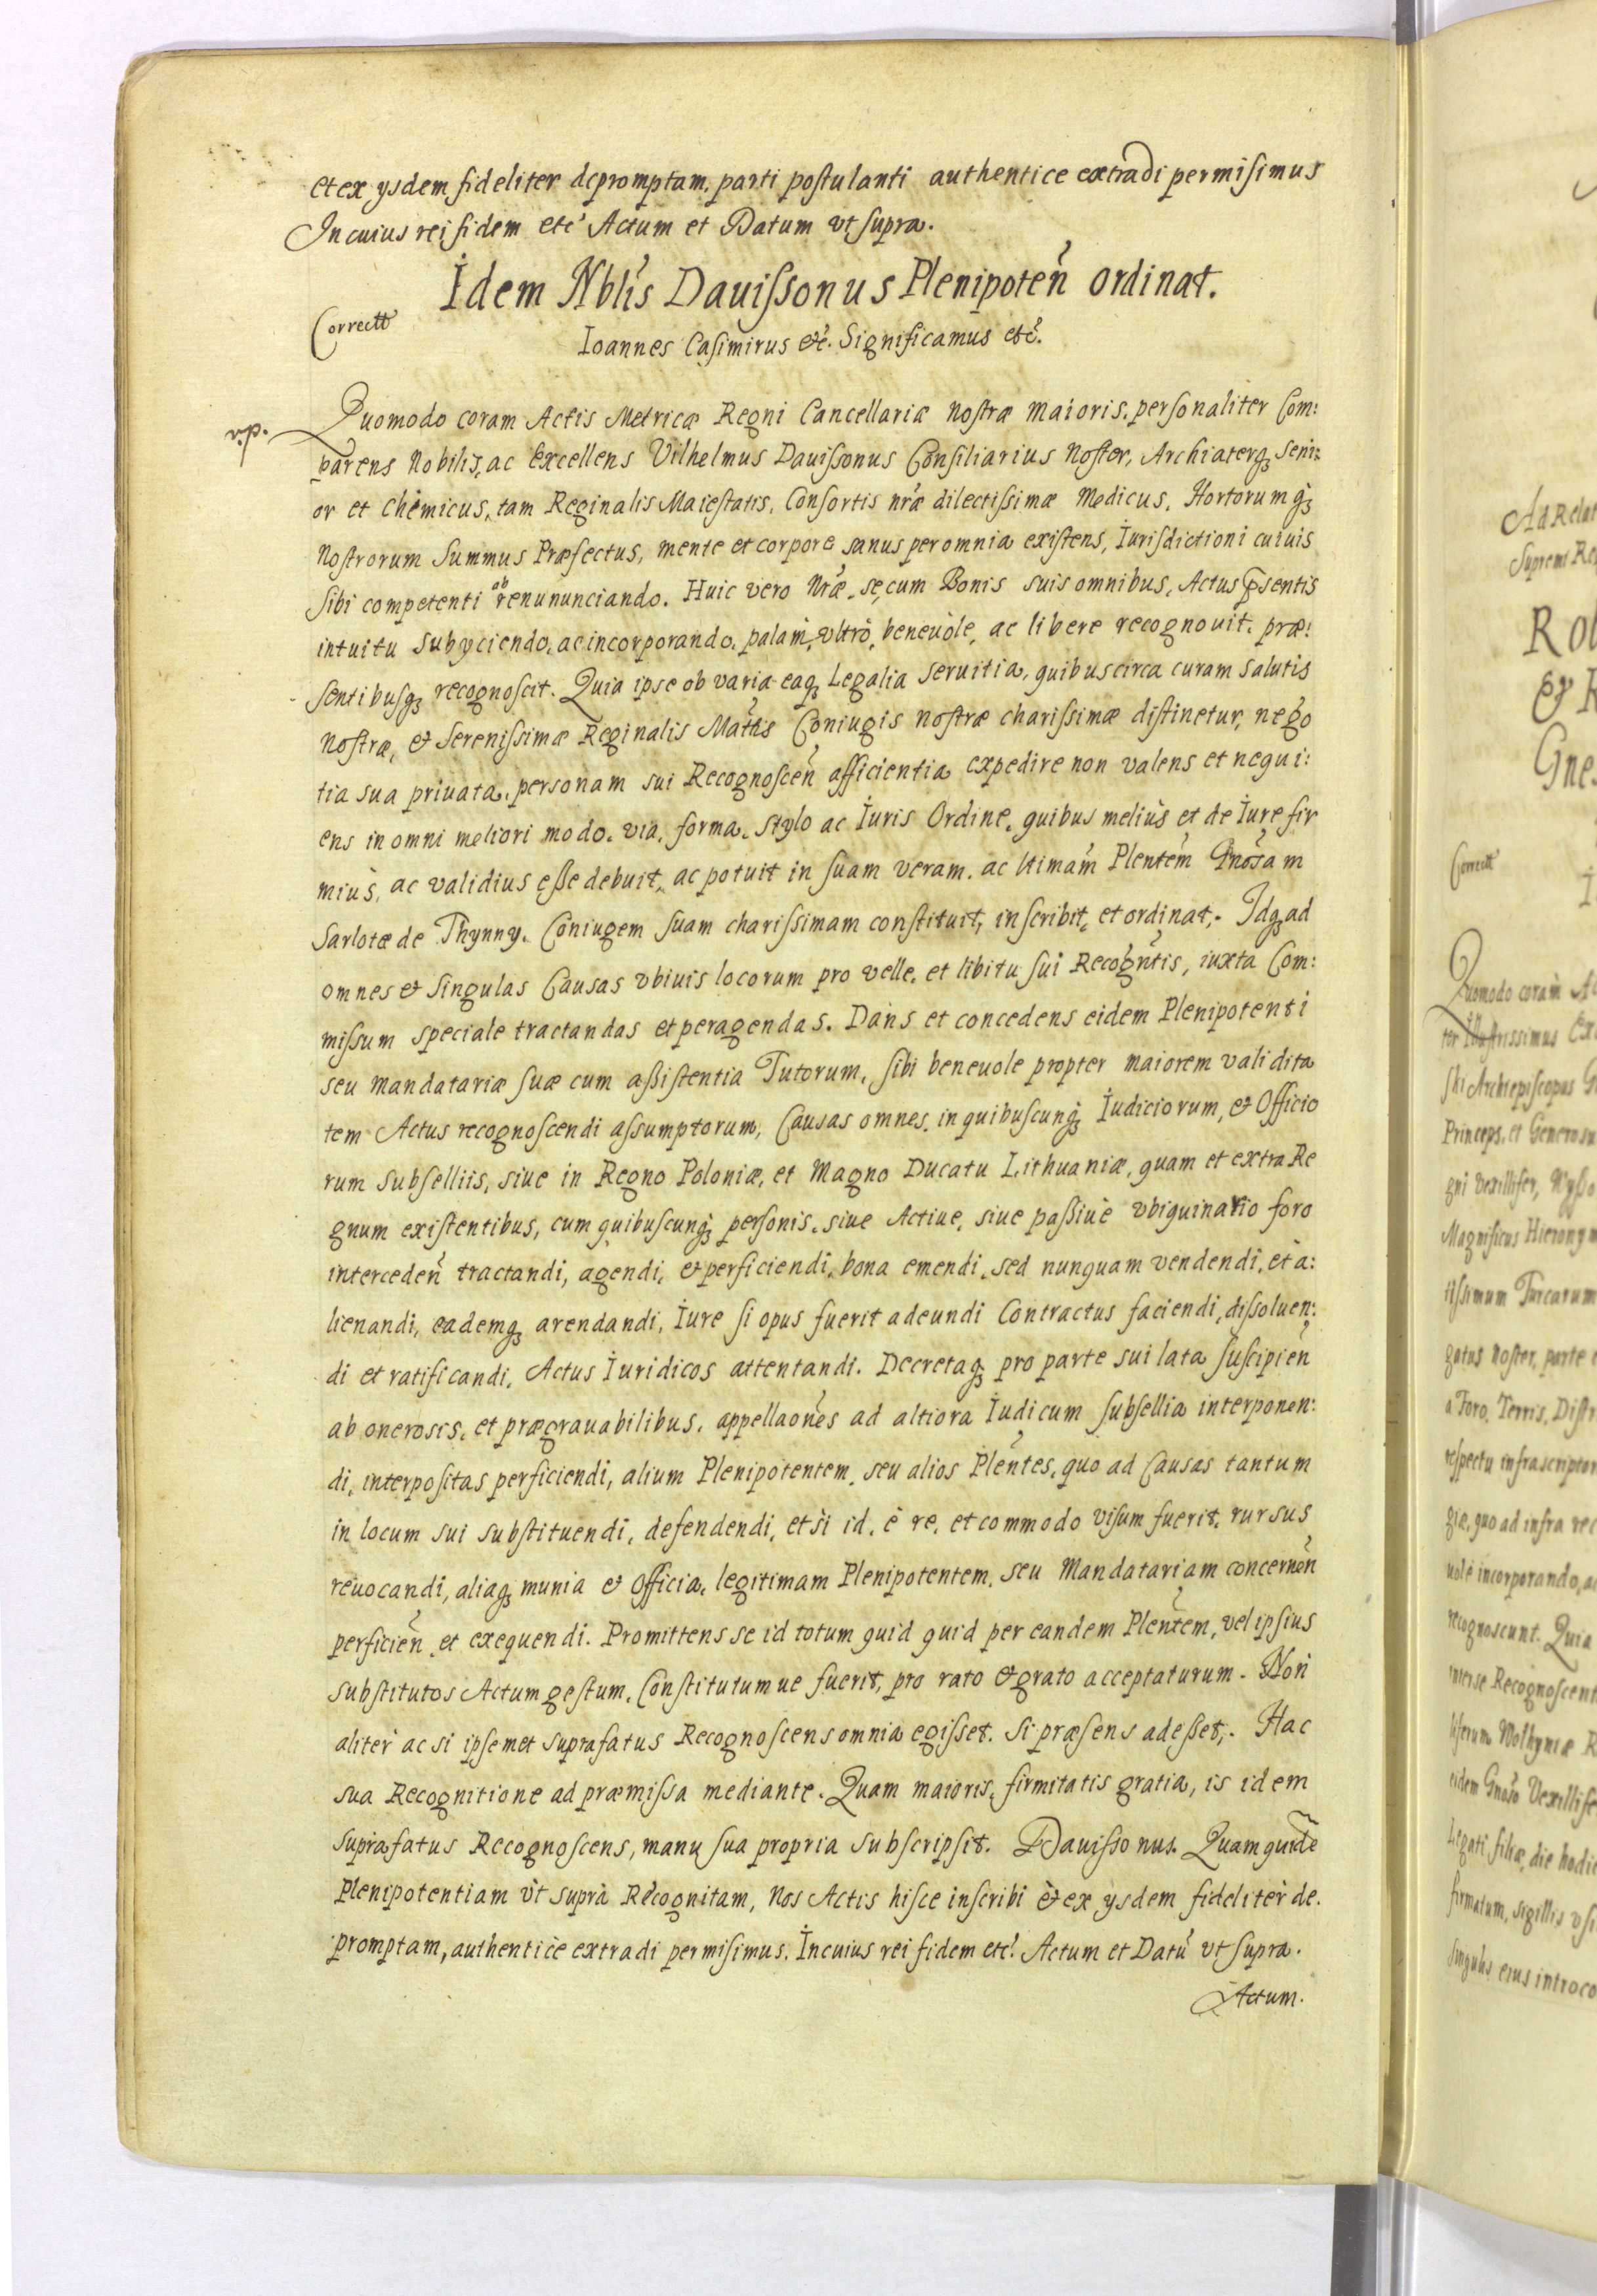 et ex ijsdem fideliter depromptam, parti postulanti authentice extradi permisimus
In cuius rei fidem etc Actum et Datum vt supra.
Idem Nblis Dauissonus Plenipoten ordinat.
Correctt
Ioannes Casimirus etc. Significamus etc.
Quomodo coram Actis Metricæ Regni Cancellariæ nostræ maioris, personaliter Com:
parens Nobilis, ac Excellens Vilhelmus Dauissonus Consiliarius noster, Archiaterq3 Seni:
or et Chemicus, tam Reginalis Maiestatis, Consortis nræ dilectissimæ Medicus, Hortorumq3
nostrorum Summus Præfectus, mente et corpore sanus per omnia existens, Iurisdictioni cuiuis
sibi competenti ab renununciando. Huic vero Nræ, se, cum Bonis suis omnibus, Actus psentis
intuitu subijciendo, ac incorporando, palam, vltrò, beneuòle, ac libere recognouit, præ:
sentibusq3 recognoscit. Quia ipse ob varia eaq3 Legalia seruitia, quibus circa curam salutis
nostræ, et Serenissimæ Reginalis Mattis Coniugis nostræ charissimæ distinetur, nego
tia sua priuata, personam sui Recognoscen afficientia expedire non valens et nequi:
ens in omni meliori modo, via, forma, stylo ac Iuris Ordine, quibus meliùs et de Iure fir
miùs, ac validius esse debuit, ac potuit in suam veram, ac ltimam Plentem Gnosam
Sarlotæ de Thynny, Coniugem suam charissimam constituit, inscribit, et ordinat. Idq3 ad
omnes et singulas Causas vbiuis locorum pro velle, et libitu sui Recogntis, iuxta Com:
missum speciale tractandas et peragendas. Dans et concedens eidem Plenipotenti
seu mandatariæ suæ cum assistentia Tutorum, sibi beneuole propter maiorem validita
tem Actus recognoscendi assumptorum, Causas omnes, in quibuscunq3 Iudiciorum, et Officio
rum subselliis, siue in Regno Poloniæ, et Magno Ducatu Lithuaniæ, quam et extra Re
gnum existentibus, cum quibuscunq3 personis, siue Actiue, siue passiuè vbiquinario foro
interceden tractandi, agendi, et perficiendi, bona emendi, sed nunquam vendendi, et a:
lienandi, eademq3 arendandi, Iure si opus fuerit adeundi Contractus faciendi, dissoluen:
di et ratificandi, Actus Iuridicos attentandi. Decretaq3 pro parte sui lata suscipien
ab onerosis, et prægrauabilibus, appellaones ad altiora Iudicum subsellia interponen:
di, interpositas perficiendi, alium Plenipotentem, seu alios Plentes, quo ad Causas tantum
in locum sui substituendi, defendendi, et si id, è re, et commodo visum fuerit, rursus
reuocandi, aliaq3 munia et Officia, legitimam Plenipotentem, seu Mandatariam concernen
perficien, et exequendi. Promittens se id totum quid quid per eandem Plentem, vel ipsius
substitutos Actum gestum, Constitutumue fuerit, pro rato et grato acceptaturum. Non
aliter ac si ipsemet suprafatus Recognoscens omnia egisset. si præsens adesset. Hac
sua Recognitione ad præmissa mediante. Quam maioris, firmitatis gratia, is idem
suprafatus Recognoscens, manu sua propria subscripsit. Dauissonus. Quam quide
Plenipotentiam vt suprà Recognitam, Nos Actis hisce inscribi et ex ijsdem fideliter de.
promptam, authenticè extradi permisimus. In cuius rei fidem etc. Actum et Datu vt supra.
Actum.
Correctt
Quomodo coram Ac
Princeps, et Generosu
Magnificus Hieronym
tissimum Turcarum
gatus noster, parte
a Foro, Terris, Distr
respectu infrascriptor
giæ, quo ad infra rec
uolè incorporando, a
recognoscunt. Quia